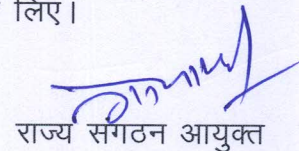 लिए।
राज्य संगठन आयुक्त